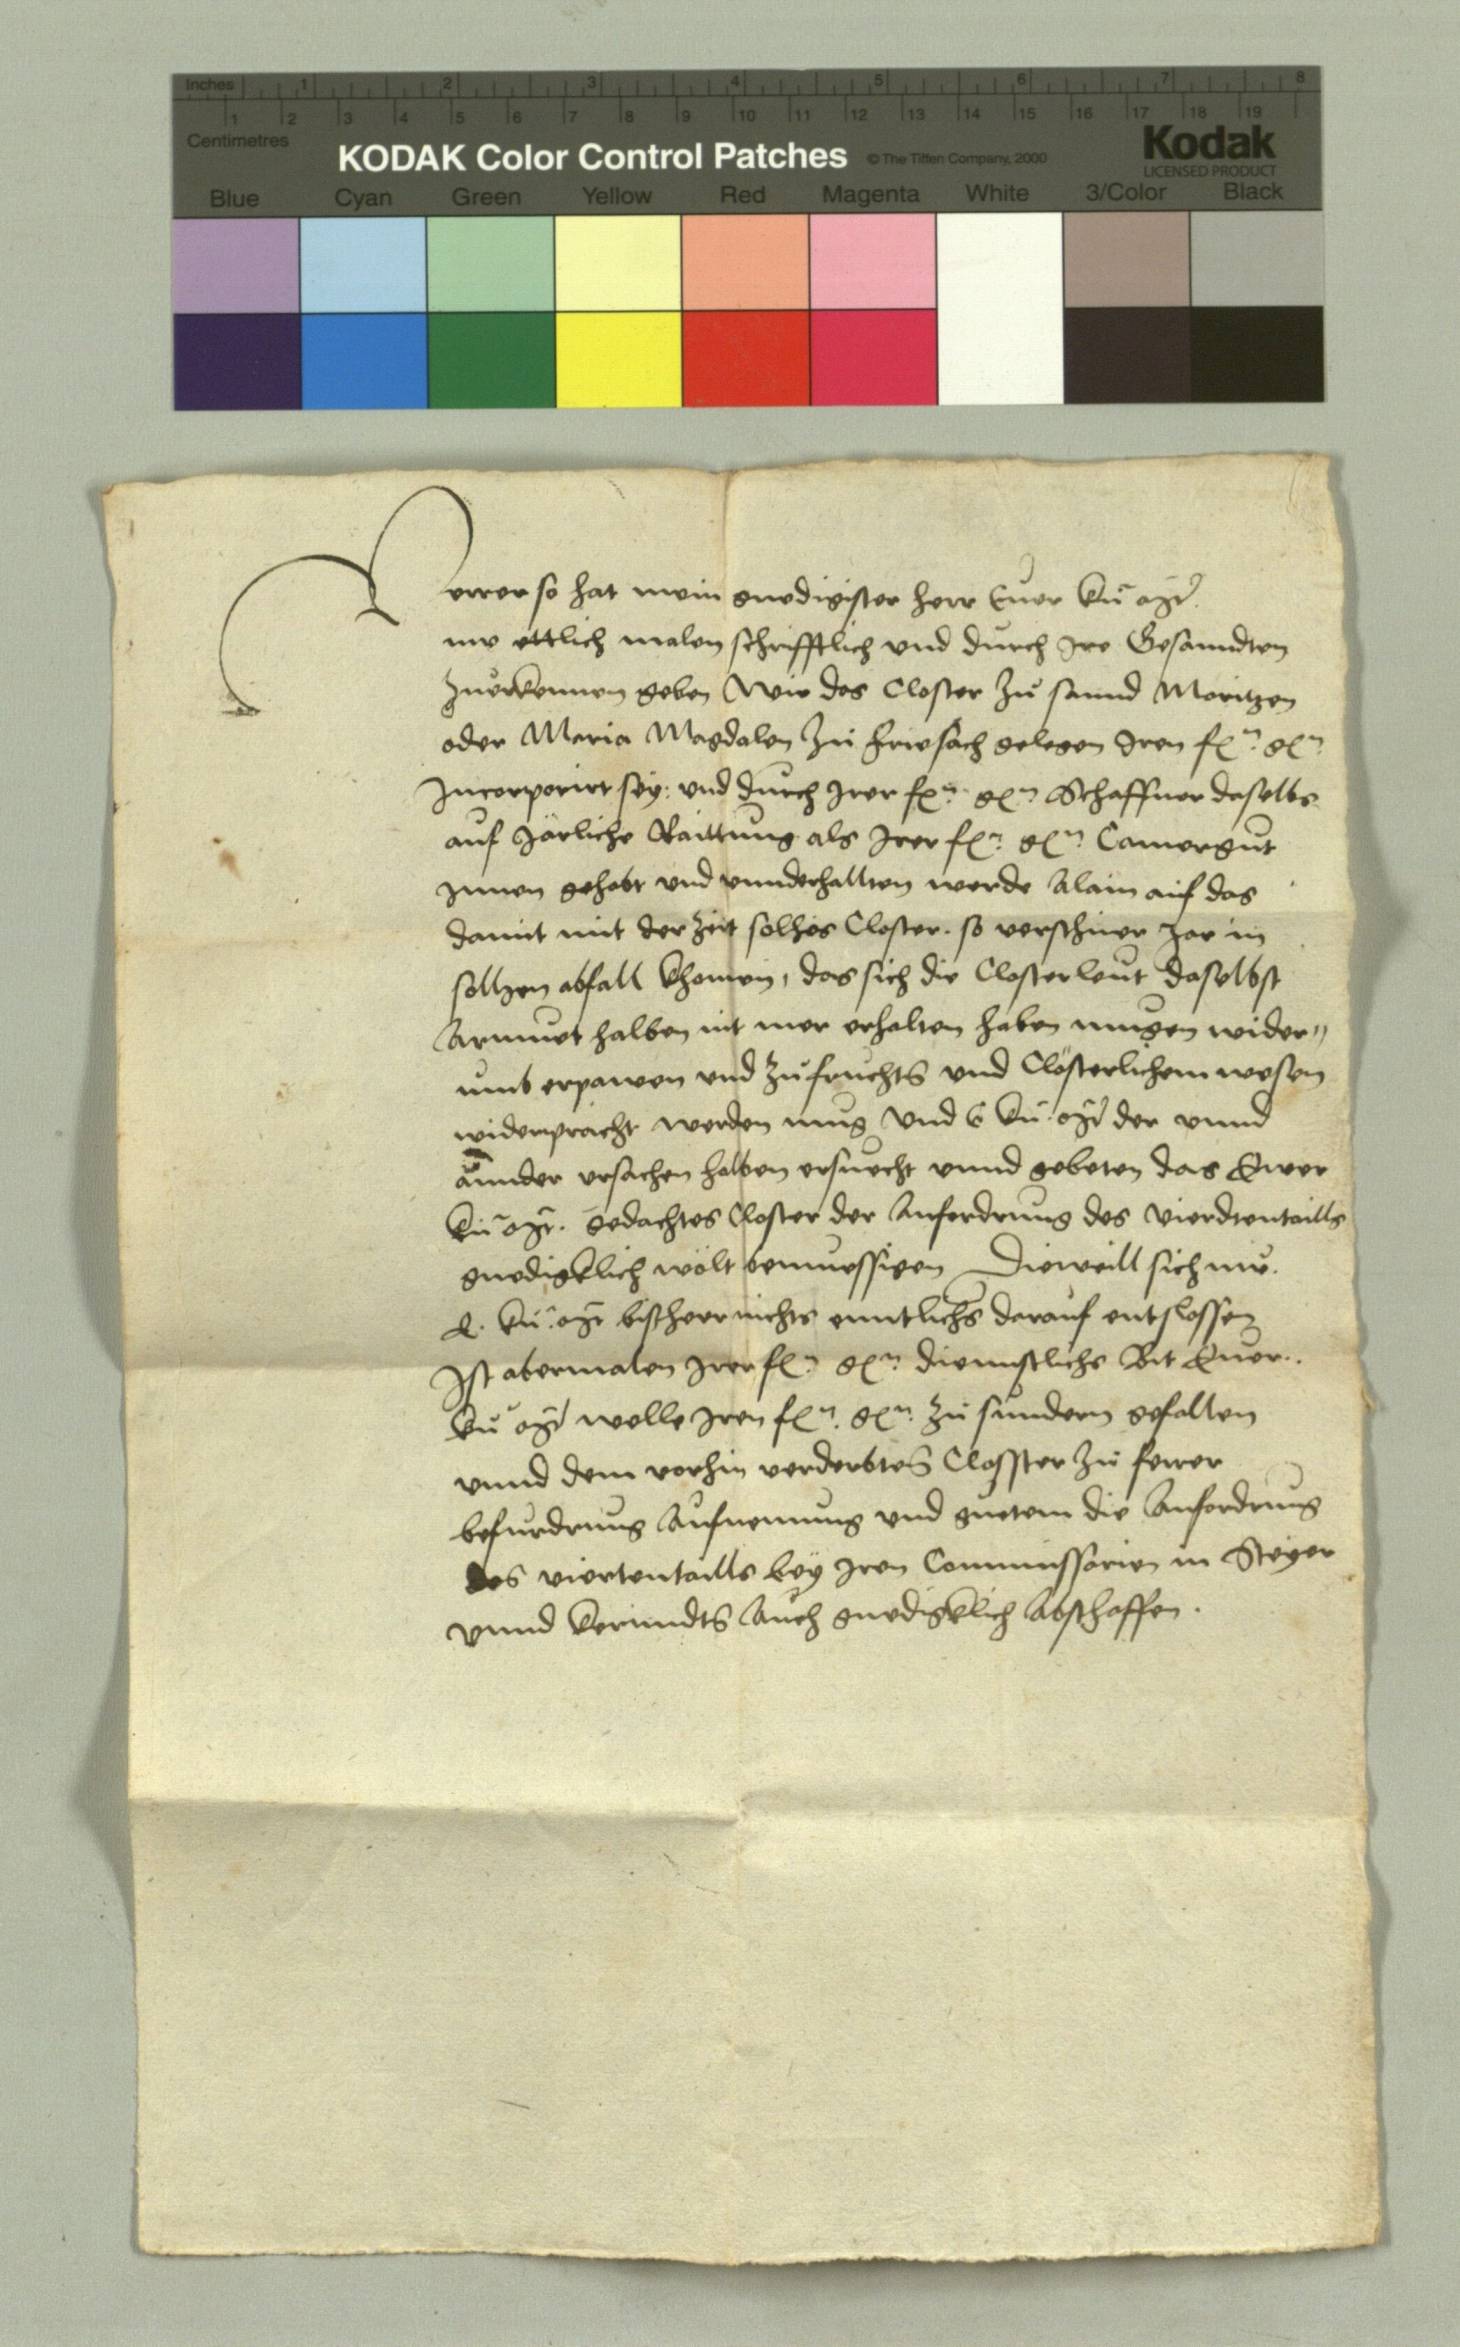 Inches 1 2 3 4 5 6 7 8
1 2 3 4 5 6 7 8 9 10 11 12 13 14 15 16 17 18 19
Centimetres
KODAK Color Control Patches © The Tiffen Company, 2000
Kodak
LICENSED PRODUCT
Blue Cyan Green Yellow Red Magenta White 3/Color Black
Ferrer so hat mein gnedigister herr Euer Kü. Mt.
nu ettlich malen schrifftlich und durch Ire Gesanndten
zuerkennen geben Wie das Closter zu sannd Moritzen
oder Maria Magdalen zu Friesach gelegen Iren f. g.
Incorporirt sey: und durch Irer f. g. Schaffner daselbs
auf Järliche Raittung als Irer f. g. Camergut
Innen gehabt und unnderhallten werde Alain auf das
damit mit der Zeit solhes Closter. so verschiner Jar in
sollhen abfall khomen, das sich die Closterleut daselbst
Armuet halben nit mer erhalten haben mugen wider„
umb erpawen und zu frucht und Clösterlichem wesen
widerpracht werden mug Und E Kü. Mt der unnd
annder ursachen halben ersuecht unnd gebeten das Ewer
Kü Mt. gedachtes Closter der Anfordrung des Vierdtentaills
gnedigklich wölt bemuessigen Dieweill sich nu.
E. Kü. Mt bisheer nichts enntlichs darauf entslossen
Ist abermalen Irer f. g. diennstlichs Bit Euer..
Kü Mt welle Iren f. g. zu sundern gefallen
unnd dem vorhin verderbten Closster zu ferrer
befurdrung Aufnemung und guetem die Anfordrung
des viertentaills bey Iren Commissarien in Steyer
unnd Kerndten Auch gnedigklich Abschaffen.